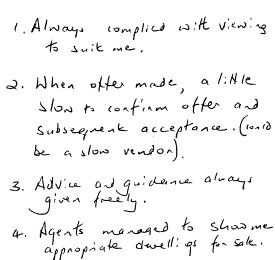 1. Always complied with viewing
to suit me.
2. When offer made, a little
slow to confirm offer and
subsequent acceptance. (could
be a slow vendor).
3. Advice and guidance always
given freely.
4. Agents managed to show me
appropriate dwellings for sale.